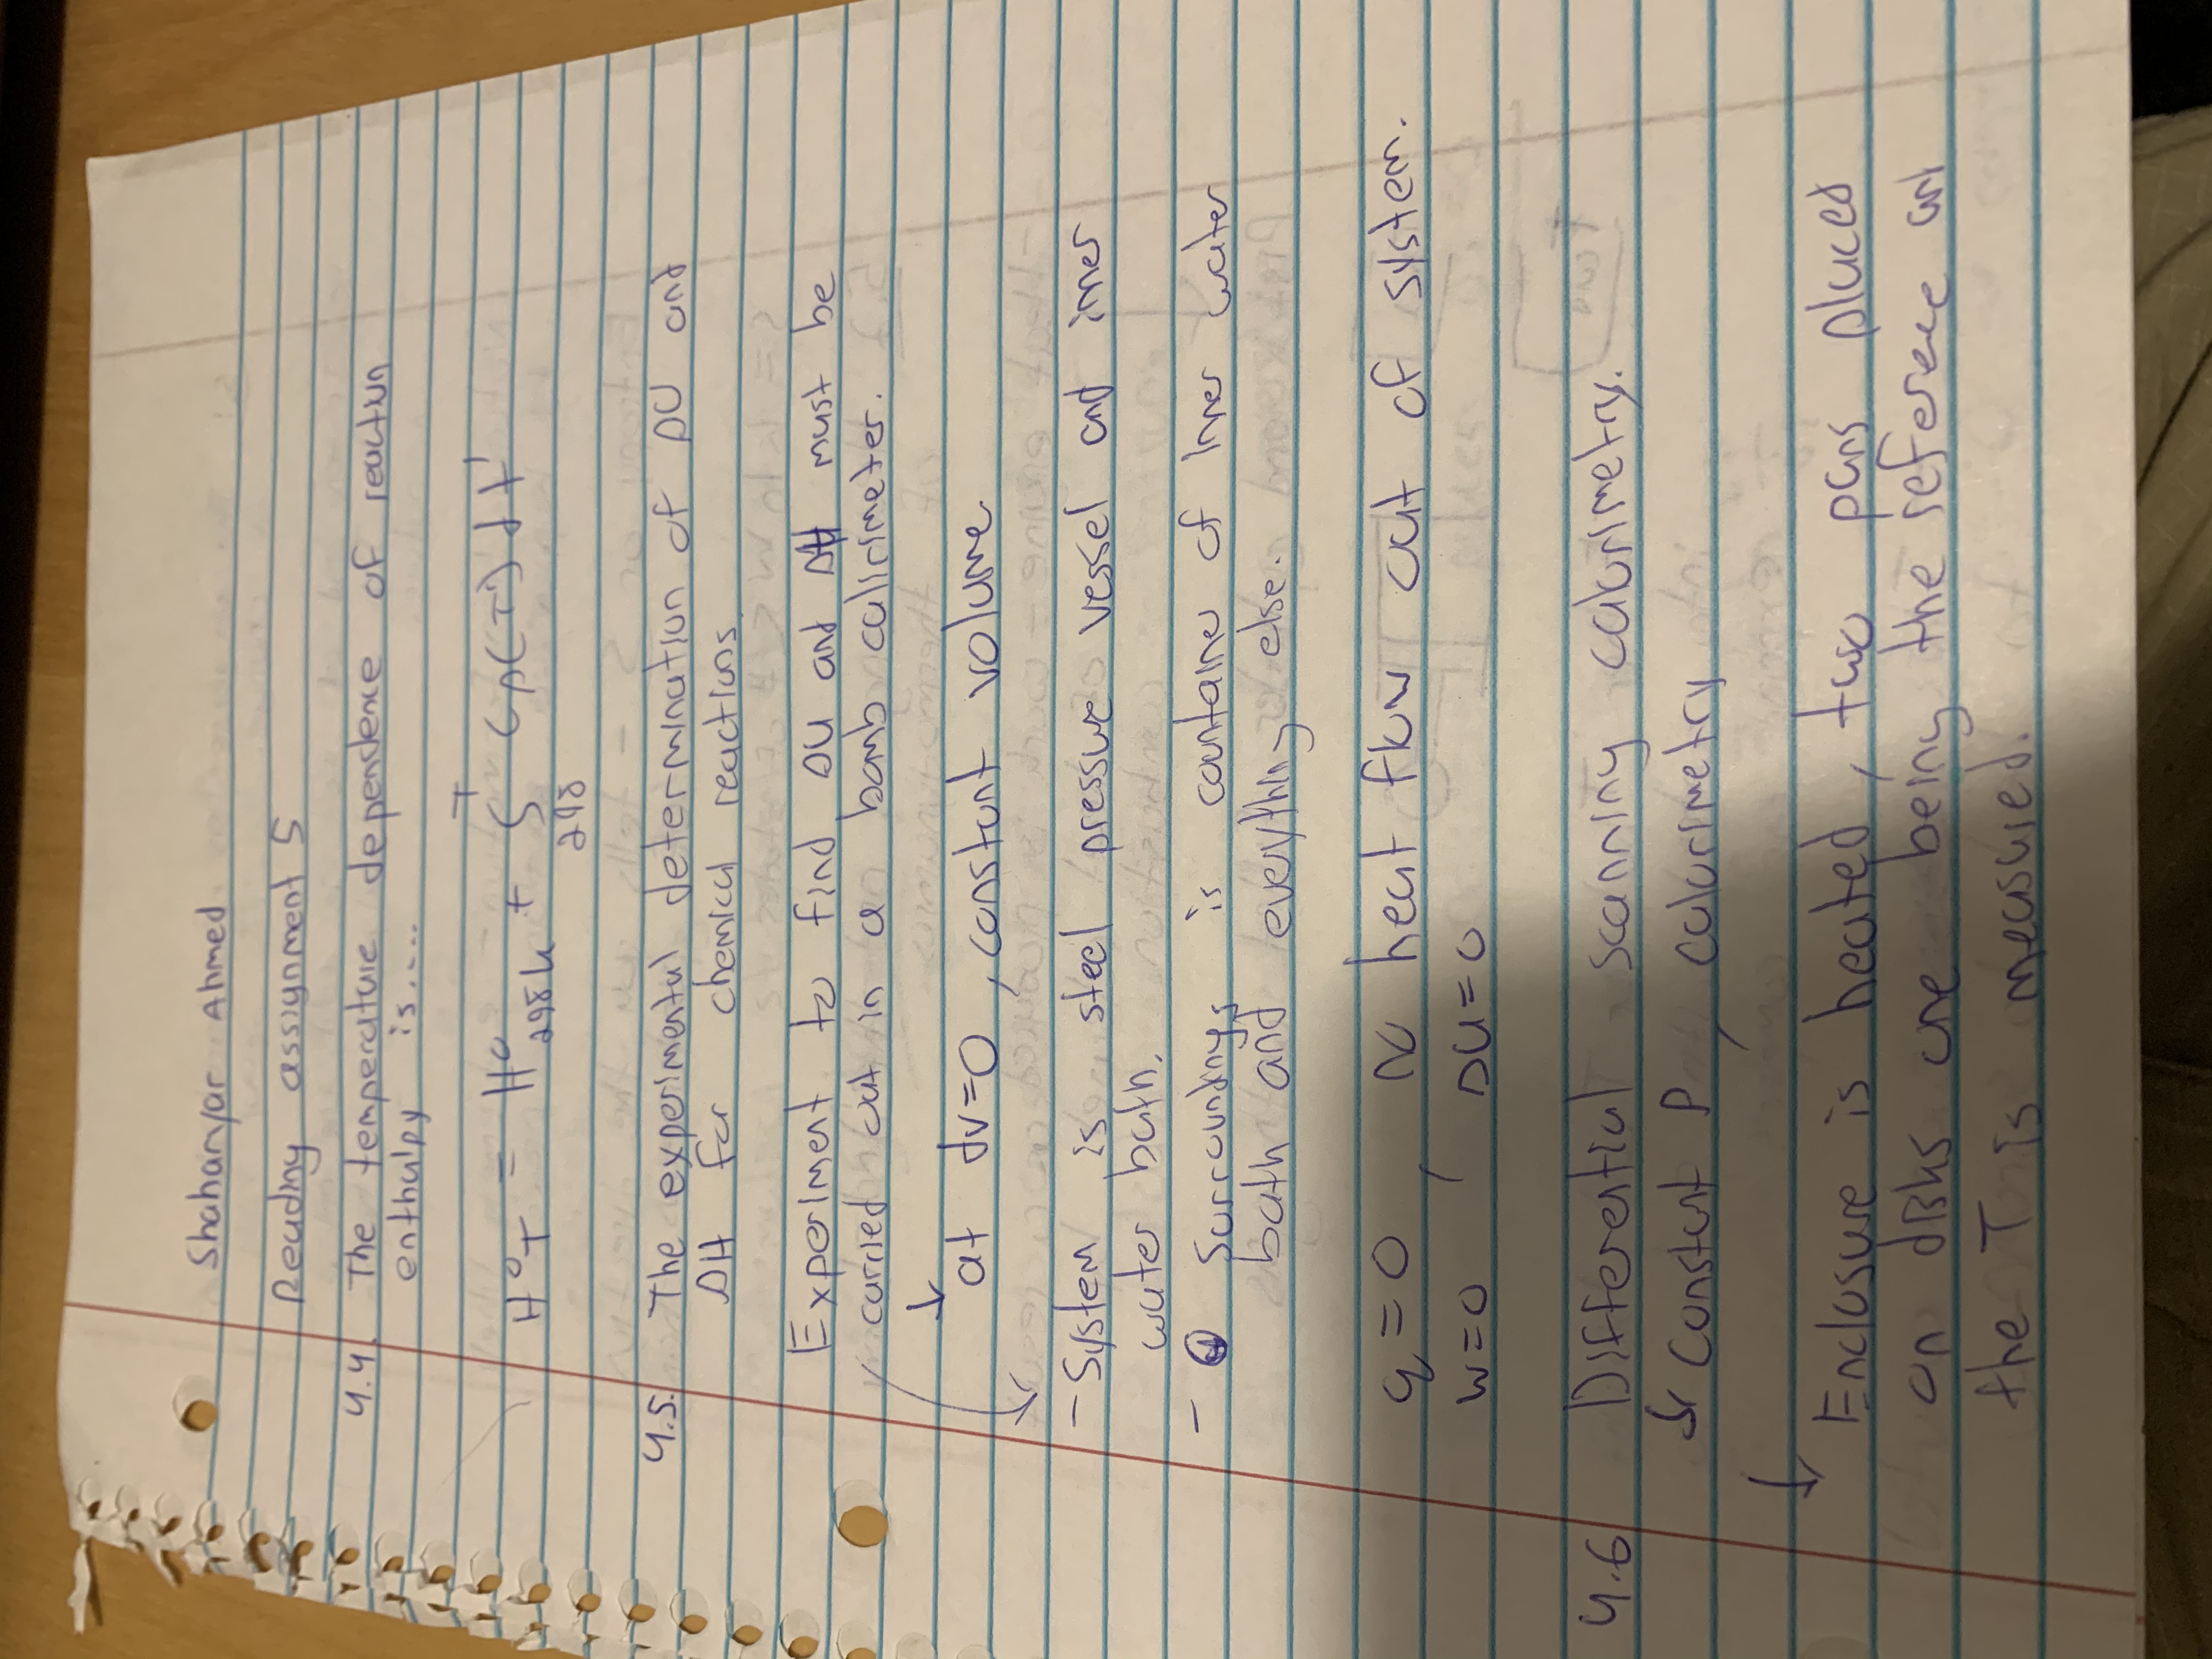 Shaharyar Ahmed
Reading assignment 5
4.4. The temperature dependence of reaction
enthalpy is....
H°T = H°298k + ∫ T 298 Cp(T') dt'
4.5. The experimental determination of ΔU and
ΔH for chemical reactions.
Experiment to find ΔU and ΔH must be
carried out in a bomb calirimeter.
↓
at dv=0, constant volume
- System is steel pressure vessel and inner
water bath.
- Surroundings is countainer of inner water
bath and everything else.
q=0, no heat flow out of system.
w=0 ΔU=0
4.6 Differential scanning calorimetry.
↳ Constant P, calorimetry
↓
Enclosure is heated, two pans placed
on disks one being the reference and
the T is measured.